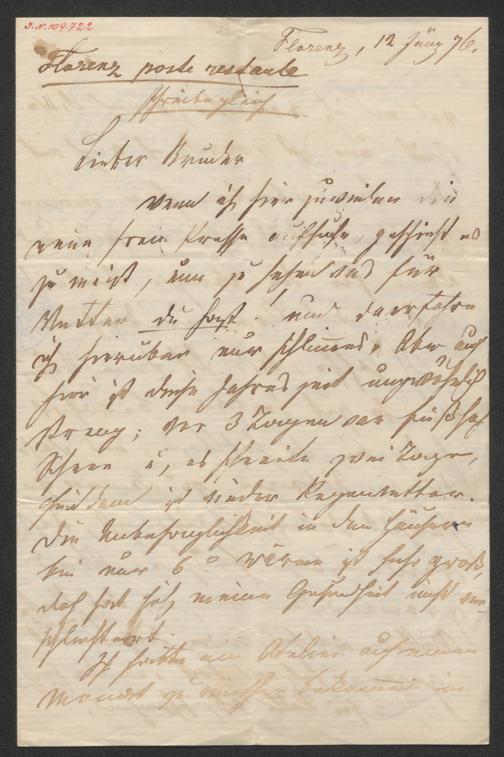 I.N. 109.722
Florenz, 12 Jänn 76.
Florenz poste restante
schreibe gleich
Lieber Bruder
Wenn ich hier zuweilen die
neue freie Presse aufsuche, geschieht es
zu meist, um zu sehen was für
Wetter du hast. und da erfahre
ich hierüber nur schlimmes. Aber auch
hier ist diese Jahreszeit ungewöhnlich
streng; vor 3 Tagen war fußhoch
Schnee u, es schneite zwei Tage,
seitdem ist wieder Regenwetter.
Die Unbehaglichkeit in den Häusern
bei nur 6° Wärme ist sehr groß,
doch hat sich meine Gesundheit nicht ver-
schlechtert.
Ich hatte ein Atelier auf einen
Monat zu bekommen in